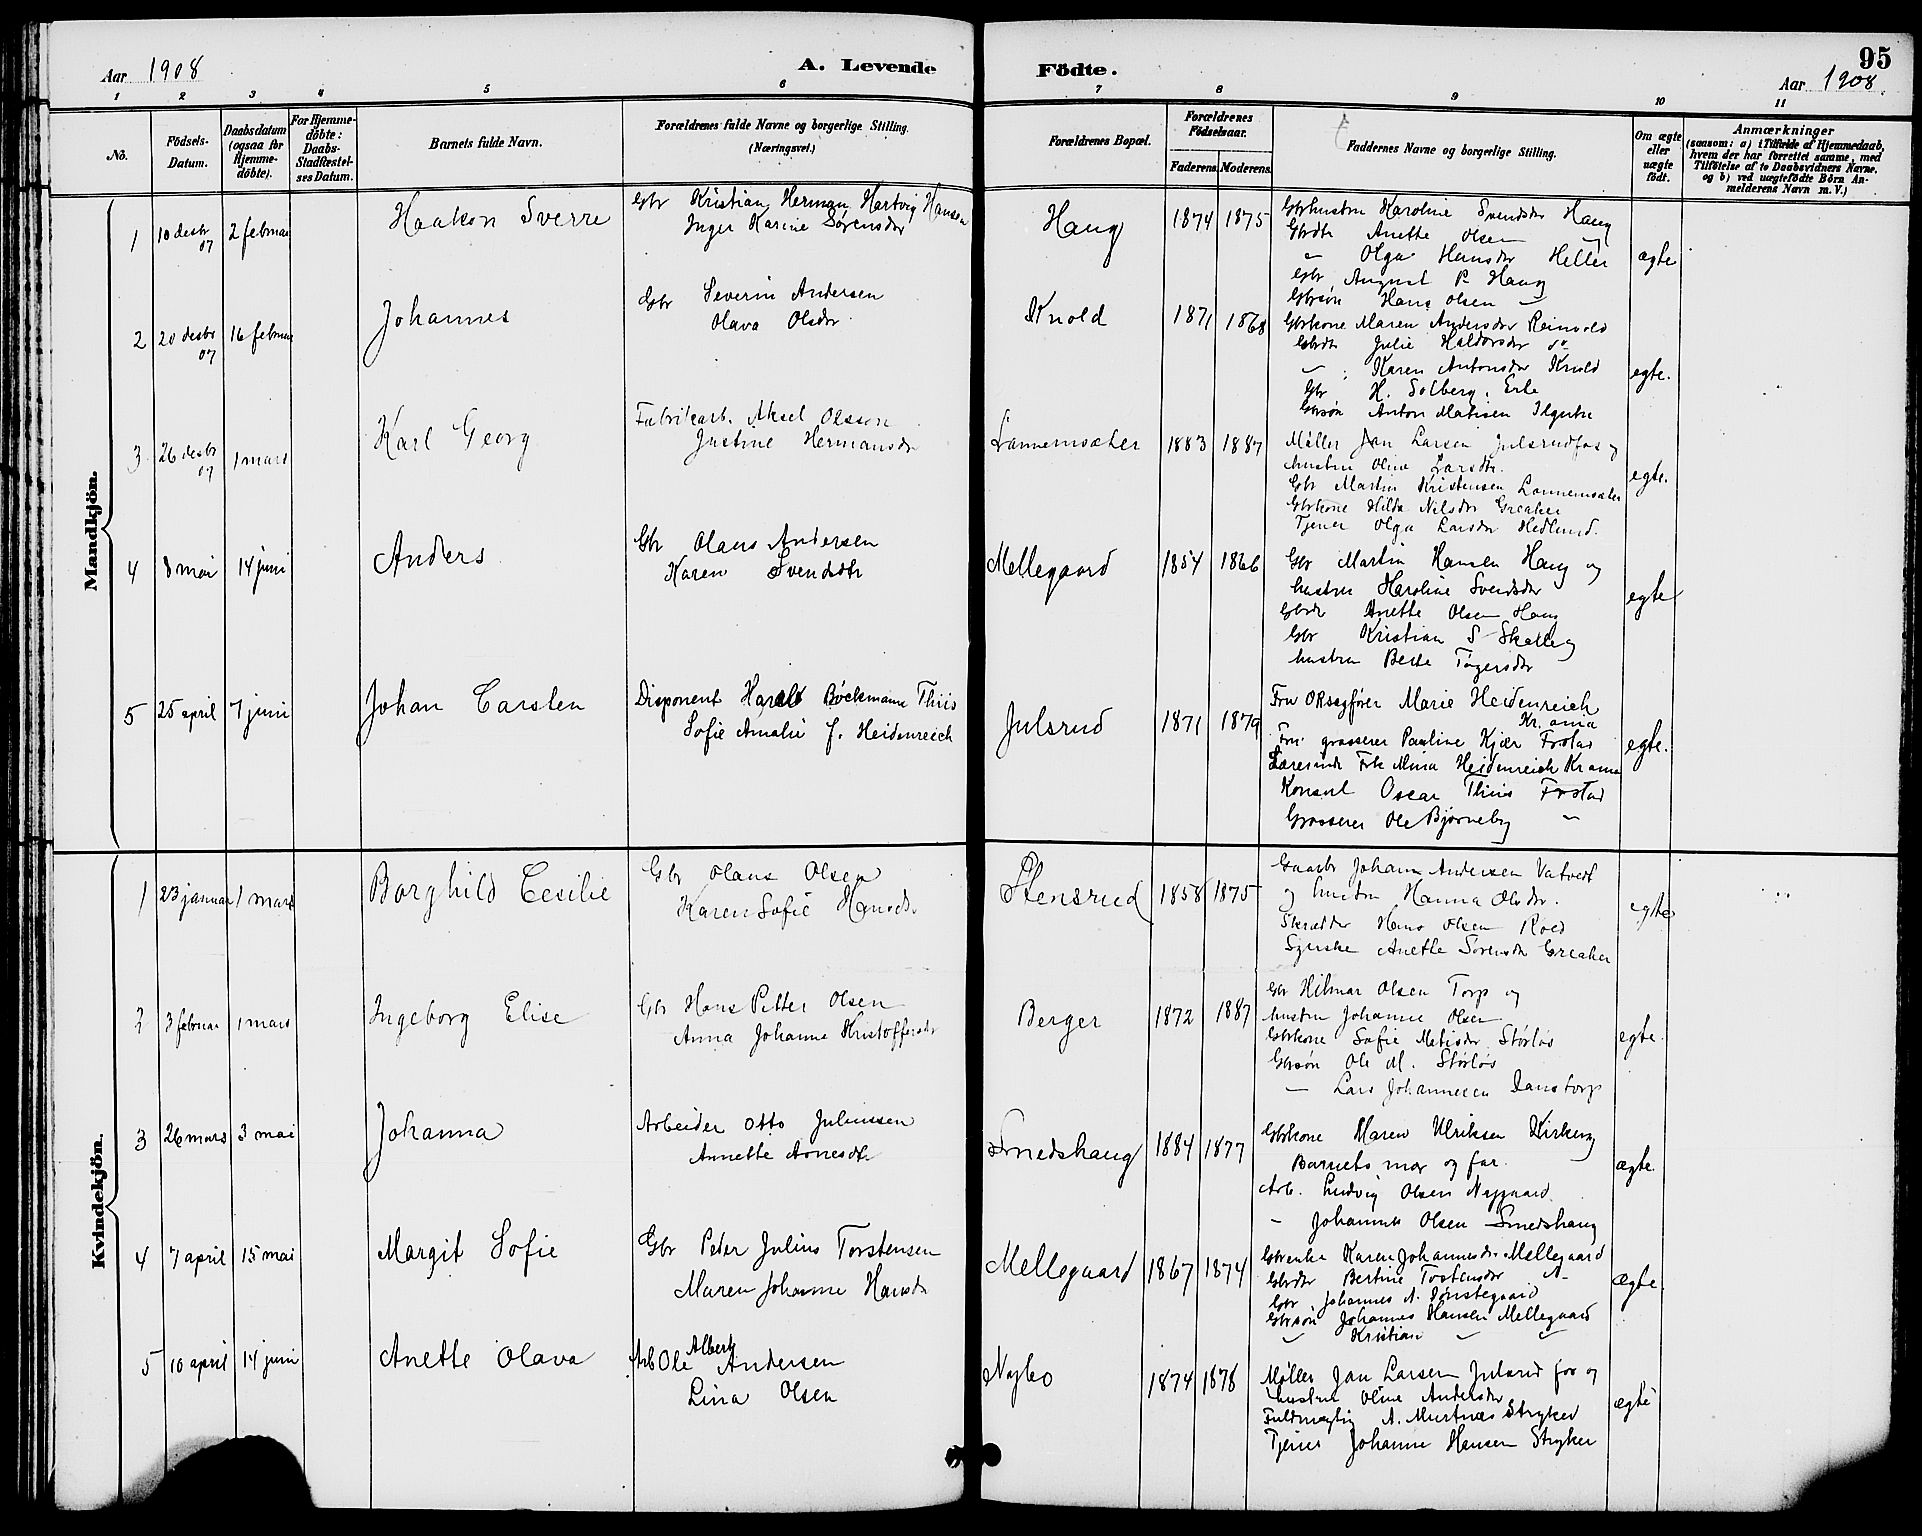 95
Aar 1908
A. Levende
Födte.
Aar 1908.
1 2 3 4 5 6 7 8 9 10 11
No.
Födsels-Datum.
Daabsdatum (ogsaa for Hjemme-döbte).
For Hjemme-döbte: Daabs-Stadfæstel-ses Datum.
Barnets fulde Navn.
Forældrenes fulde Navne og borgerlige Stilling.
(Næringsvei.)
Forældrenes Bopæl.
Forældrenes Födselsaar.
Faderens. Moderens.
Faddernes Navne og borgerlige Stilling.
Om ægte eller uægte födt.
Anmærkninger
(saasom: a) i Tilfælde af Hjemmedaab, hvem der har forrettet samme, med Tilföielse af to Daabsvidners Navne, og b) ved uægtefödte Börn An-melderens Navn m. V.)
Mandkjön.
1 10 desbr 07 2 februar Haakon Sverre
Gbr Kristian Herman Hartvig Hansen
Inger Karine Sørensdr
Haug 1874 1875
Gbrhustru Karoline Svendsdr Haug
Gbrdtr Anette Olsen —
— Olga Hansdr Heller
Gbr. August P. Haug
Gbrsøn Hans Olsen —
ægte
2 20 desbr 07 16 februar Johannes
Gbr Severin Andersen
Olava Olsdr
Knold 1871 1868
Gbrkone Maren Andersdr Reinvold
Gbrdtr Julie Haldorsdr do
— Karen Antonsdr Knold
Gbr H. Solberg, Erle
Gbrsøn Anton Matisen
egte.
3 26 desbr 07 1 mars Karl Georg
Fabrikarb. Aksel Olsson
Justine Hermansdr
Lannemsæter 1883 1887
Møller Jan Larsen Julsrudfos og
hustru Oline Larsdtr.
Gbr Martin Kristensen Lannemsæter
Gbrkone Hilda Nilsdr Greaker
Tjener Olga Larsdr Hedlund.
egte.
4 8 mai 14 juni Anders
Gbr Olaus Andersen
Karen Svendsdtr
Mellegaard 1854 1866
Gbr Martin Hansen Haug og
hustru Karoline Svendsdr
Gbrdtr Anette Olsen Haug
Gbr Kristian S. Skolleg
hustru Berte Tøgersdr
egte
5 25 april 7 juni Johan Carsten
Disponent Harald Bøckmann Thiis
Sofie Amalie f. Heidenreich
Julsrud 1871 1879
Fru ORsagfører Marie Heidenreich
Kr.ania
Fru grosserer Pauline Kjær Frstad
Lærerinde Frk Mina Heidenreich Krania
Konsul Oscar Thiis Frstad
Grosserer Ole Bjørneby —
egte.
Kvindekjön.
1 23 januar 1 mars Borghild Cesilie
Gbr Olaus Olsen
Karen Sofie Hansdr.
Stensrud 1858 1875
Gaardbr Johan Andersen Vatvedt
og hustru Hanna Olsdr.
Skrædder Hans Olsen Roed
Syerske Anette Sørensdr Greaker
egte
2 3 februar 1 mars Ingeborg Elise
Gbr Hans Petter Olsen
Anna Johanne Kristoffersdr
Berger 1872 1887
Gbr Hilmar Olsen Torp og
hustru Johanne Olsen
Gbrkone Sofie Matisdr Størløs
Gbrsøn Ole M. Størløs
— Lars Johannesen Danstorp
egte.
3 26 mars 3 mai Johanna
Arbeider Otto Juliussen
Annette Arnesdtr
Smedshaug 1884 1877
Gbrkone Maren Ulriksen Kirkeng
Barnets mor og far.
Arb. Ludvig Olsen Nygaard
— Johannes Olsen Smedshaug
ægte.
4 7 april 15 mai Margit Sofie
Gbr Peter Julius Torstensen
Maren Johanne Hansdr
Mellegaard 1867 1874
Gbrenke Karen Johannesdr. Mellegaard
Gbrdtr Bertine Torstensdr —
Gbr Johannes A. Tønstegaard
Gbrsøn Johannes Hansen Mellegaard
— Kristian — —
ægte.
5 10 april 14 juni Anette Olava
Arb Ole Albert Andersen
Lina Olsen
Nybo 1874 1878
Møller Jan Larsen Julsrud fos og
hustru Oline Andersdr
Fuldmægtig A. Murtnes Stryker
Tjener Johanne Hansen Stryker
ægte